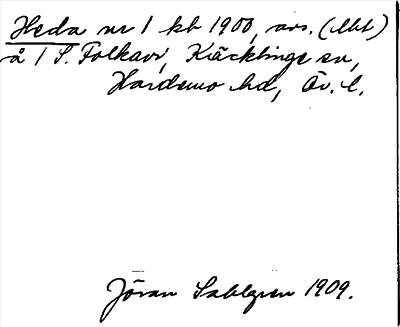 Heda nr 1 kb 1900, avs. (Mbl)
å 1 S. Folkavi, Kräcklinge sn,
Hardemo hd, Ör. l.
Jöran Sahlgren 1909.